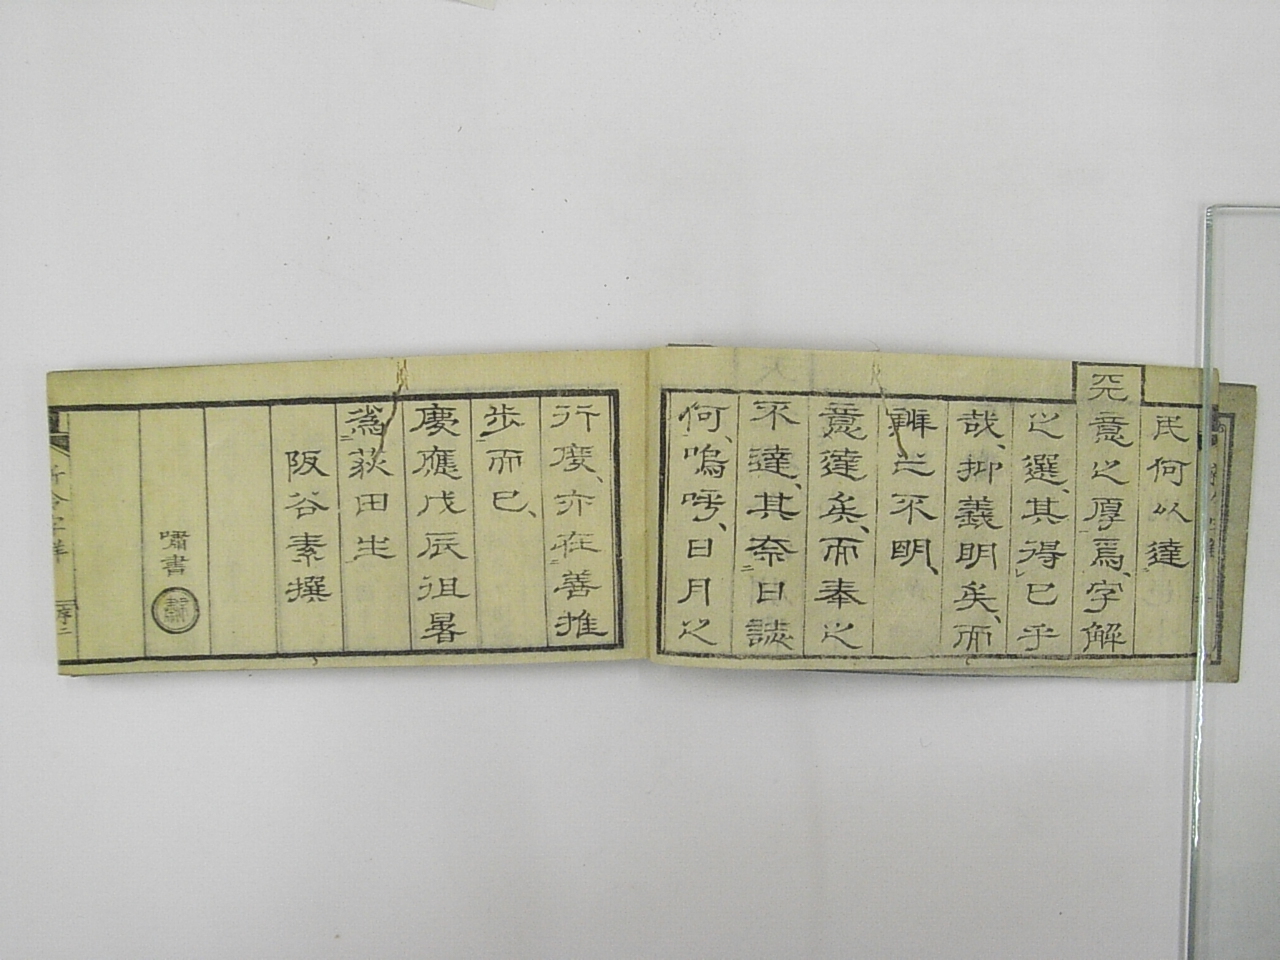 民何以達
天意之厚焉、字解
之選、其得已乎
哉、抑義明矣、而
辭之不明、
意達矣、而奉之
不達、其奈日誌
何、嗚呼、日月之
行度、亦在善推
步而已、
慶應戊辰徂暑
爲荻田生
阪谷素撰
嘯書
序二